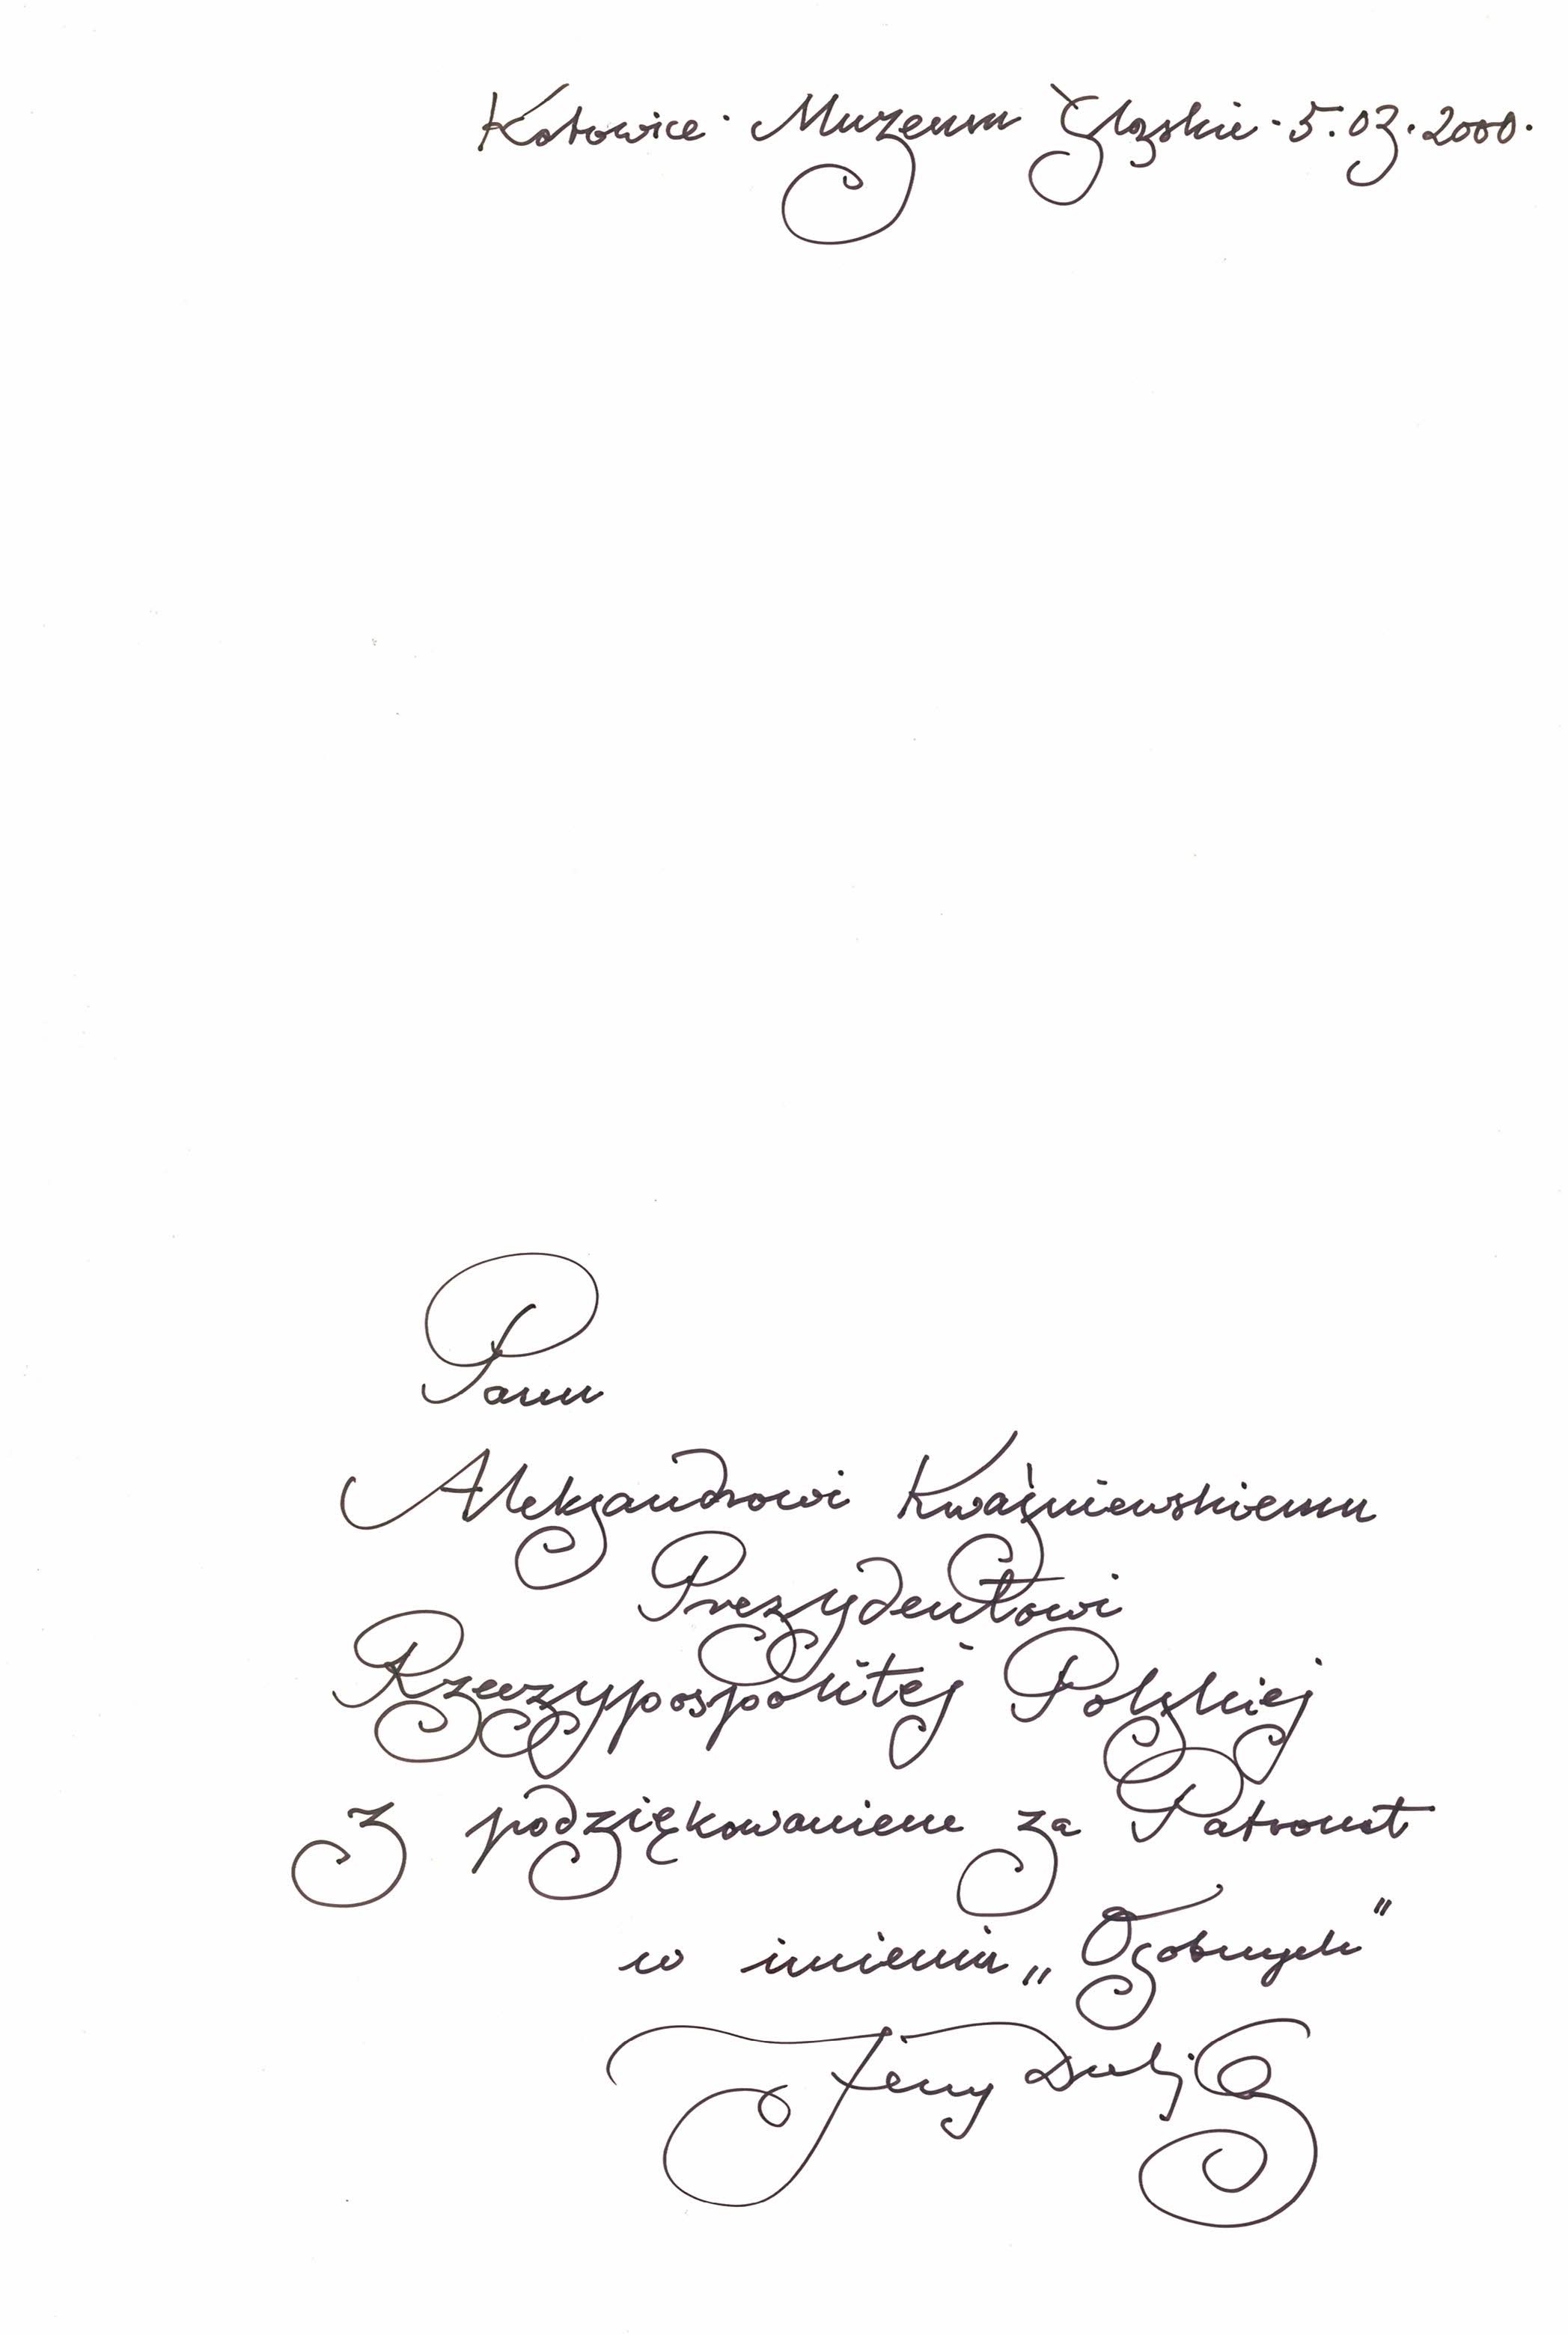 Katowice · Muzeum Śląskie · 5.03.2000.
Panu
Aleksandrowi Kwaśniewskiemu
Prezydentowi
Rzeczypospolitej Polskiej
z podziękowaniem za Patronat
w imieniu „Osobnych"
Jerzy